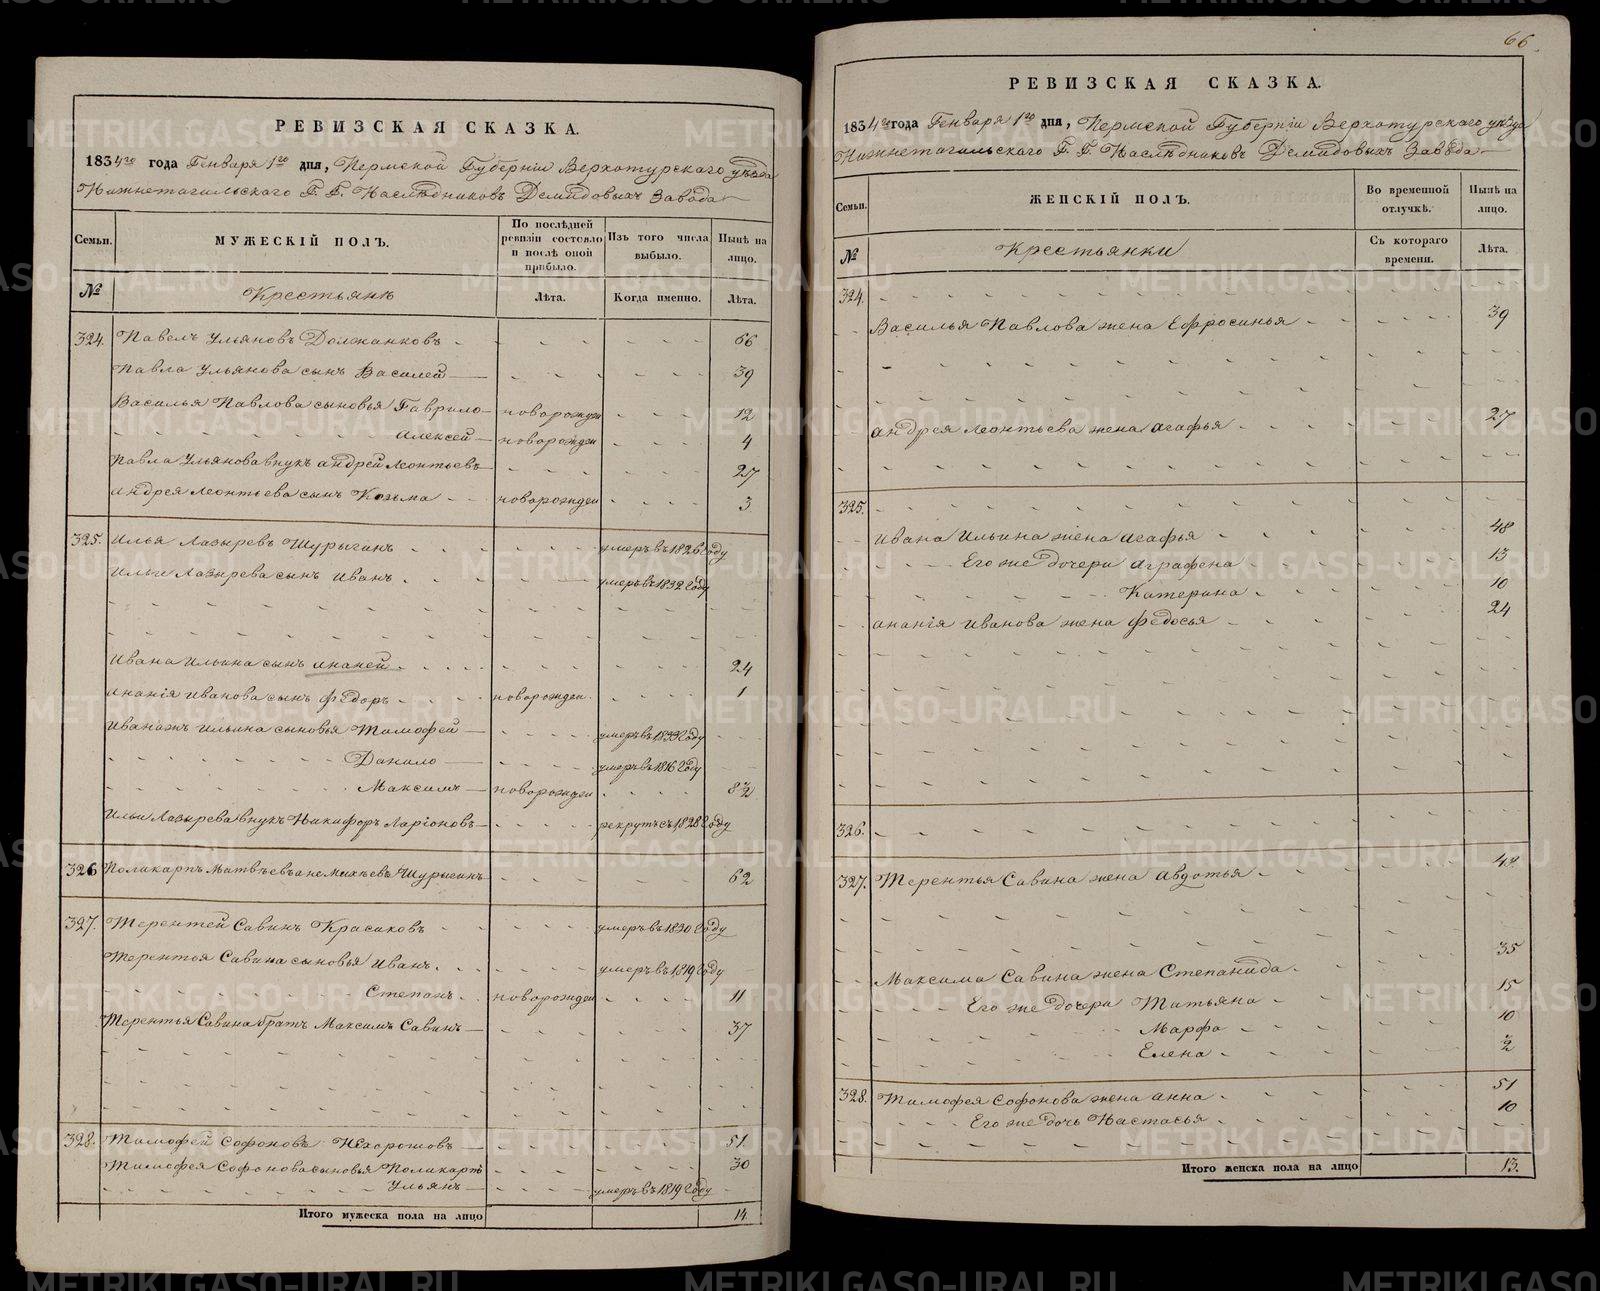 РЕВИЗСКАЯ СКАЗКА.
1834го года Генваря 1го дня, Пермской Губерніи Верхотурскаго уѣзда
Нижнетагильскаго Г. Г. Наслѣдниковъ Демидовыхъ Завода
Семьи. МУЖЕСКІЙ ПОЛЪ. По послѣдней ревизіи состояло и послѣ оной прибыло. Изъ того числа выбыло. Нынѣ на лицо.
№ Крестьянъ Лѣта. Когда именно. Лѣта.
324. Павелъ Ульяновъ Должанковъ 66
Павла Ульянова сынъ Василей 39
Василья Павлова сыновья Гаврило новорожден 12
Алексей новорожден 4
Павла Ульянова внукъ Андрей Леонтьевъ 27
Андрея Леонтьева сынъ Козьма новорожден 3
325. Илья Лазыревъ Шурыгинъ умеръ въ 1826 году
Ильи Лазырева сынъ Иванъ умеръ въ 1832 году
Ивана Ильина сынъ Ананей 24
Ананія Иванова сынъ Федоръ новорожден 1
Иванажъ Ильина сыновья Тимофей умеръ въ 1833 году
Данило умеръ въ 1816 году
Максимъ новорожден 8½
Ильи Лазырева внукъ Никифоръ Ларіоновъ рекрутъ съ 1828 году
326 Поликарпъ Матвѣевъ а не Михѣевъ Шурыгинъ 62
327. Терентей Савинъ Красиковъ умеръ въ 1830 году
Терентья Савина сыновья Иванъ умеръ въ 1819 году
Степанъ новорожден 11
Терентья Савина братъ Максимъ Савинъ 37
328. Тимофей Софоновъ 51
Тимофея Софонова сыновья Поликарпъ 30
Ульянъ умеръ въ 1819 году
Итого мужеска пола на лицо 14
66
РЕВИЗСКАЯ СКАЗКА.
1834го года Генваря 1го дня, Пермской Губерніи Верхотурскаго уѣзда
Нижнетагильскаго Г. Г. Наслѣдниковъ Демидовыхъ Завода
Семьи. ЖЕНСКІЙ ПОЛЪ. Во временной отлучкѣ. Нынѣ на лицо.
№ Крестьянки Съ котораго времени. Лѣта.
324.
Василья Павлова жена Ефросинья 39
Андрея Леонтьева жена Агафья 27
325.
Ивана Ильина жена Агафья 48
Его же дочери Аграфена 13
Катерина 10
Ананія Иванова жена Федосья 24
326.
327. Терентья Савина жена Авдотья 48
Максима Савина жена Степанида 35
Его же дочери Татьяна 15
Марфа 10
Елена 2
328. Тимофея Софонова жена Анна 51
Его же дочь Настасья 10
Итого женска пола на лицо 13.
METRIKI.GASO-URAL.RU